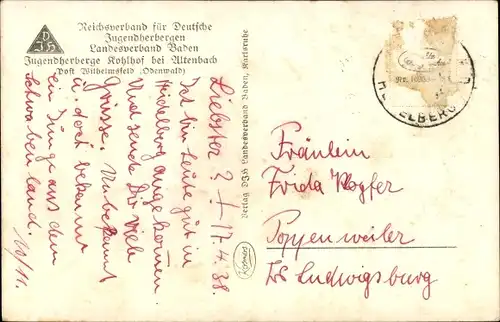 Reichsverband für Deutsche
Jugendherbergen
Landesverband Baden
Jugendherberge Kohlhof bei Altenbach
Post Wilhelmsfeld (Odenwald)
DJH
Liebster ? ! 17.4.38.
Ist bin heute gut in
Heidelberg angekommen
Und sende Dir viele
Grüsse, Unbekannt
u. doch bekannt
ein Junge aus dem
Schwabenland.
Verlag DJH Landesverband Baden, Karlsruhe
HEIDELBERG
Fräulein
Frida
Poppenweiler
Ludwigsburg